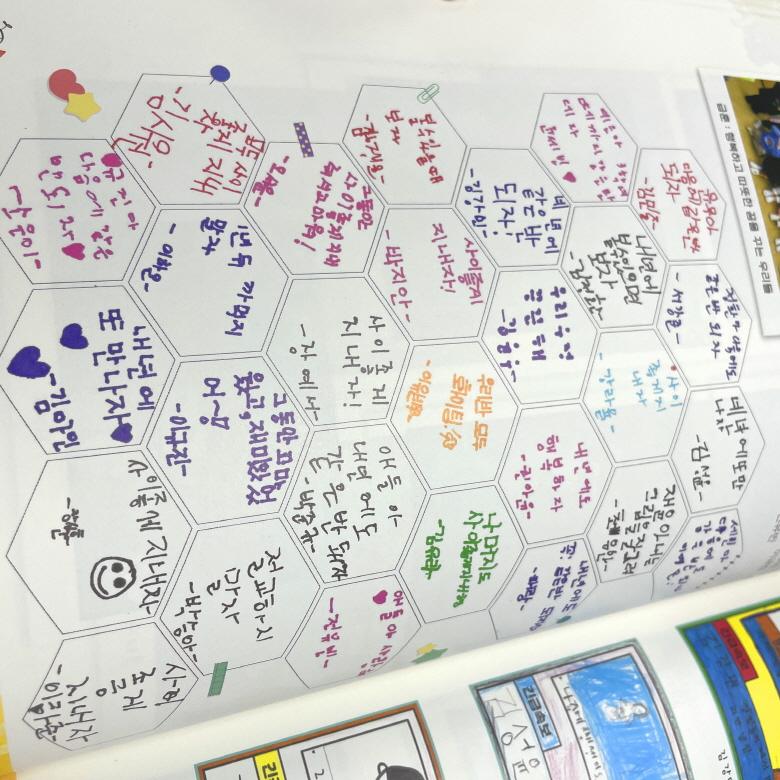 금훈 : 행복하고 따뜻한 꿈을 꾸는 우리들
윤우야
다음에 같은 반
되자
-김민준-
정환아 다음에도
같은 반 되자
-서강준-
네년에 또만
나자
-김성윤-
사이
좋게지
내자
-강라율-
재윤아 너는
그림을 잘그려
내년에
볼수있으면
보자
-김정환-
예은아 3학년
때까지 같은 반
윤세빈
네년에
같은반
되자!
-김강민-
우리 우정
끝은해
-김윤우-
내년에도
행복하자
-권아윤-
내년에도
꼭! 같은반
사이좋게
지내자!
-박지안-
우리반 모두
화이팅!
나머지도
-김유라-
볼수있을때
보자
그동안
사이좋게 지내
줘서 고마워!
사이좋게
지내자!
-장예서-
얘들아
내년에도
같은반 돼자
-박준규-
얘들아 사랑
-전유빈-
모두 사이
좋게 지내
자
-김시원-
1년 뒤 까먹지
말자
-이하온-
그동안 고마
웠고, 재미있었
어~!
-이규진-
절교하지
말자
-박승아-
규진아
다음에 같은
반되자
-소윤이-
내년에
또 만나자
-김아인-
사이좋게 지내자
사이
좋게
지내자
긴급속보
긴급속보
김성윤